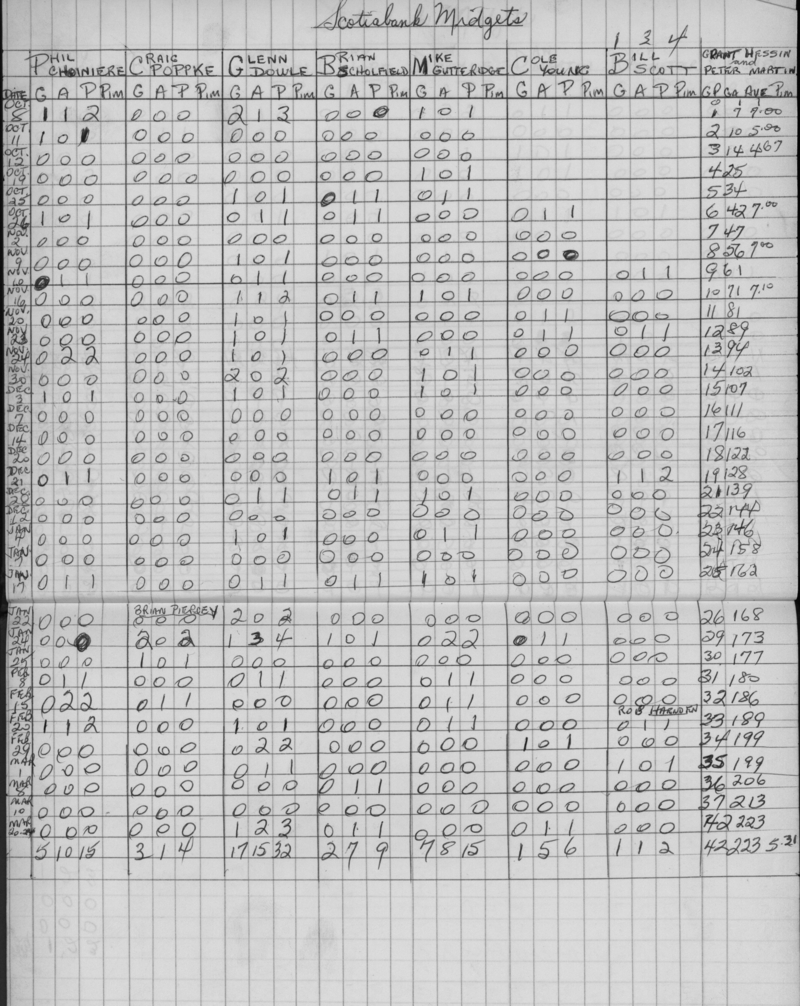 Scotiabank Midgets
1 3 4
PHIL CHOINIERE CRAIG POPPKE GLENN DOWLE BRIAN SCHOLFIELD MIKE GUTTERIDGE COLE YOUNG BILL SCOTT GRANT HESSIN and PETER MARTIN
DATE G A P Pim G A P Pim G A P Pim G A P Pim G A P Pim G A P Pim G A P Pim GP GA AVE Pim
OCT 8 1 1 2 0 0 0 2 1 3 0 0 0 1 0 1 1 7 7.00
OCT. 11 1 0 1 0 0 0 0 0 0 0 0 0 0 0 0 2 10 5.00
OCT. 12 0 0 0 0 0 0 0 0 0 0 0 0 0 0 0 3 14 4.67
OCT 19 0 0 0 0 0 0 0 0 0 0 0 0 1 0 1 4 25
OCT 25 0 0 0 0 0 0 1 0 1 0 1 1 0 1 1 5 34
OCT 26 1 0 1 0 0 0 0 1 1 0 1 1 0 0 0 0 1 1 6 42 7.00
NOV. 2 0 0 0 0 0 0 0 0 0 0 0 0 0 0 0 0 0 0 7 47
NOV 9 0 0 0 0 0 0 1 0 1 0 0 0 0 0 0 0 0 0 8 56 7.00
NOV 10 0 1 1 0 0 0 0 1 1 0 0 0 0 0 0 0 0 0 0 1 1 9 61
NOV. 16 0 0 0 0 0 0 1 1 2 0 1 1 1 0 1 0 0 0 0 0 0 10 71 7.10
NOV. 20 0 0 0 0 0 0 1 0 1 0 0 0 0 0 0 0 1 1 0 0 0 11 81
NOV 23 0 0 0 0 0 0 1 0 1 0 1 1 0 0 0 0 1 1 0 1 1 12 89
NOV. 24 0 2 2 0 0 0 1 0 1 0 0 0 0 1 1 0 0 0 0 0 0 13 94
NOV. 30 0 0 0 0 0 0 2 0 2 0 0 0 1 0 1 0 0 0 0 0 0 14 102
DEC 3 1 0 1 0 0 0 1 0 1 0 0 0 1 0 1 0 0 0 0 0 0 15 107
DEC 7 0 0 0 0 0 0 0 0 0 0 0 0 0 0 0 0 0 0 0 0 0 16 111
DEC 14 0 0 0 0 0 0 0 0 0 0 0 0 0 0 0 0 0 0 0 0 0 17 116
DEC 20 0 0 0 0 0 0 0 0 0 0 0 0 0 0 0 0 0 0 0 0 0 18 122
DEC 21 0 1 1 0 0 0 0 0 0 1 0 1 0 0 0 0 0 0 1 1 2 19 128
DEC 0 0 0 0 0 0 0 1 1 0 1 1 1 0 1 0 0 0 0 0 0 21 139
DEC 0 0 0 0 0 0 0 0 0 0 0 0 0 0 0 0 0 0 0 0 0 22 144
JAN 4 0 0 0 0 0 0 1 0 1 0 0 0 0 1 1 0 0 0 0 0 0 23 146
JAN 7 0 0 0 0 0 0 0 0 0 0 0 0 0 0 0 0 0 0 0 0 0 24 158
JAN 17 0 1 1 0 0 0 0 1 1 0 1 1 1 0 1 0 0 0 0 0 0 25 162
BRIAN PIERCEY
JAN 22 0 0 0 0 0 0 2 0 2 0 0 0 0 0 0 0 0 0 0 0 0 26 168
JAN 24 0 0 0 2 0 2 1 3 4 1 0 1 0 2 2 0 1 1 0 0 0 29 173
JAN 25 0 0 0 1 0 1 0 0 0 0 0 0 0 0 0 0 0 0 0 0 0 30 177
FEB 8 0 1 1 0 0 0 0 1 1 0 0 0 0 1 1 0 0 0 0 0 0 31 180
FEB 15 0 2 2 0 1 1 0 0 0 0 0 0 0 1 1 0 0 0 0 0 0 32 186
ROB
FEB 20 1 1 2 0 0 0 1 0 1 0 0 0 0 1 1 0 0 0 0 1 1 33 189
FEB 29 0 0 0 0 0 0 0 2 2 0 0 0 0 0 0 1 0 1 0 0 0 34 199
MAR 1 0 0 0 0 0 0 0 1 1 0 0 0 0 0 0 0 0 0 1 0 1 35 199
MAR 8 0 0 0 0 0 0 0 0 0 0 1 1 0 0 0 0 0 0 0 0 0 36 206
MAR 10 0 0 0 0 0 0 0 0 0 0 0 0 0 0 0 0 0 0 0 0 0 37 213
MAR 0 0 0 0 0 0 1 2 3 0 1 1 0 0 0 0 1 1 0 0 0 42 223
5 10 15 3 1 4 17 15 32 2 7 9 7 8 15 1 5 6 1 1 2 42 223 5.31